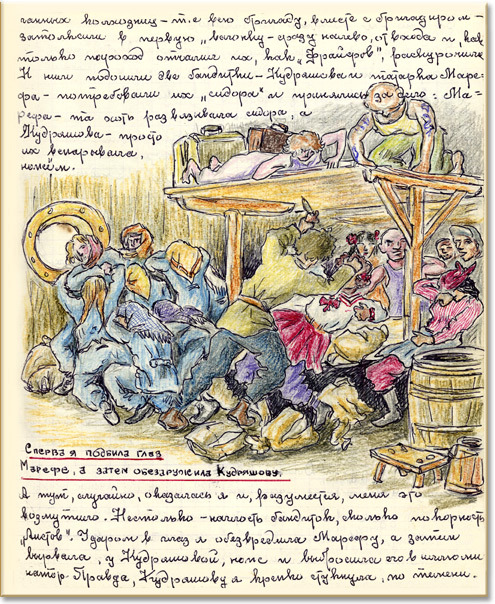 ганных колхозниц – т.е всю бригаду, вместе с бригадиром –
затолкали в первую „вагонку“ – сразу налево, от входа и, как
только пароход отчалил их, как „фрайеров“, раскурочили.
К ним подошли две бандитки – Кудряшова и татарка Маре-
фа – потребовали их „сидора“ и принялись за дело: Ма-
рефа – та хоть развязывала сидора, а
Кудряшова – просто
их вспарывала,
ножом.
Сперва я подбила глаз
Марефе, а затем обезаружила Кудряшову.
А тут, случайно, оказалась я и, разумеется, меня это
возмутило. Не столько – наглость бандиток, сколько покорность
Ударом в глаз я обезвредила Марефу, а затем
вырвала, у Кудряшовой, нож и выбросила его в иллюми-
натор. Правда, Кудряшову я крепко стукнула, по темени.